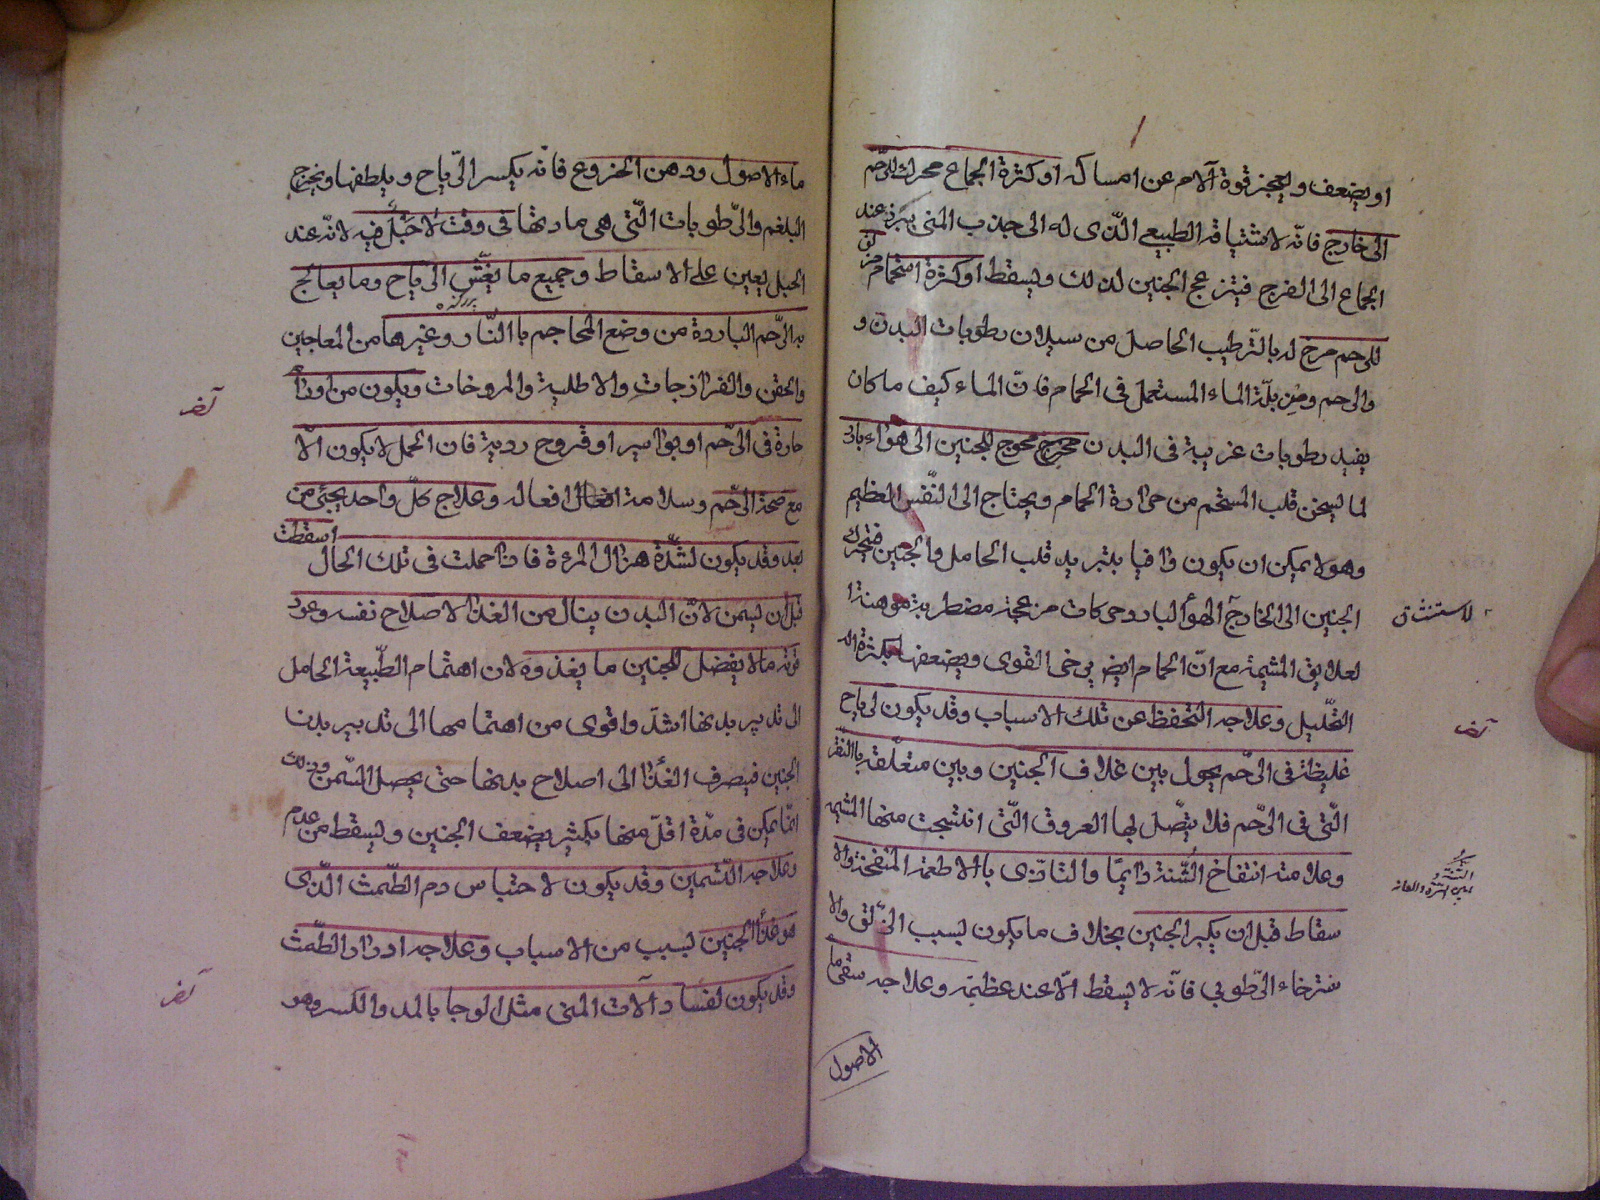 او يضعف ويعجز قوة آلام عن امساكه او كثرة الجماع محرك للرحم
الى خارج فانّه لاشتياقه الطبيعى الّذى له الى جذب المنى يبرز عند
الجماع الى الفرج فينزعج الجنين لذلك ويسقط او كثرة استحمام مزلق
للرحم مرخ له بالترطيب الحاصل من سيلان رطوبات البدن و
والرحم ومن بلّة الماء المستعمل فى الحمام فانّ الماء كيف ما كان
يفيد رطوبات غريبة فى البدن محوج للجنين الى هواء بارد
لما يسخن قلب المستحم من حرارة الحمام ويحتاج الى النّفس العظيم
وهو لا يمكن ان يكون وافيا بتبريد قلب الحامل والجنين فيتحرك
الجنين الى الخارج الهوأ البارد حركات مزعجة مضطربة موهنة
للاستنشاق
لعلايق المشيمة مع انّ الحمام ايض يرخى القوى ويضعفها بكثرة
التحليل وعلاجه التحفظ عن تلك الاسباب وقد يكون لرياح
غليظة فى الرّحم يحول بين غلاف الجنين وبين متعلّقه باالنقر
الّتى فى الرّحم فلا يتّصل بها العروق الّتى انتسجت منها المشيمة
وعلامته انتفاخ الثّنة دايمًا والتاذّى باالاطعمة المنفخة والا
بين السّرة والعانة
سقاط قبل ان يكبر الجنين بخلاف ما يكون بسبب الزّلق والا
سترخاء الرّطوبى فانّه لا يسقط الّا عند عظمه وعلاجه سقى ما
الاصول
ماء الاصول ودهن الخروع فانّه يكسر الرّياح ويلطفها ويخرج
البلغم والرّطوبات الّتى هى مادتها فى وقت لا حَبْل فيه لانّه عند
الحبل يعين على الاسقاط وجميع ما يفشّ الرياح وما يعالج
به الرّحم الباردة من وضع المحاجم باالنّار وغيرها من المعاجين
والحقن والفرازجات والاطلية والمروخات ويكون من اورام
حارة فى الرّحم او بواسير او قروح ردية فان الحمل لا يكون الّا
مع صحة الرّحم وسلامة افعاله وعلاج كلّ واحد يجئ من
بعد وقد يكون لشدّة هزال المرءة فاذا حملت فى تلك الحال اسقطت
قبل ان يسمن لانّ البدن ينال من الغذا لاصلاح نفسه وعود
قوته ما لا يفضل للجنين ما يغذوه لان اهتمام الطّبيعة الحامل
الى تدبير بدنها اشدّ واقوى من اهتمامها الى تدبير بدن
الجنين فيصرف الغذا الى اصلاح بدنها حتى يحصل السّمن وذلك
انّما يمكن فى مدّة اقلّ منها بكثير يضعف الجنين ويسقط من عدم
وعلاجه التّسمين وقد يكون لاحتباس دم الطّمث الّذى
هو غذأ الجنين لسبب من الاسباب وعلاجه ادرار الطّمث
وقد يكون لفساد آلات المنى مثل الوجا بالمد والكسر وهو